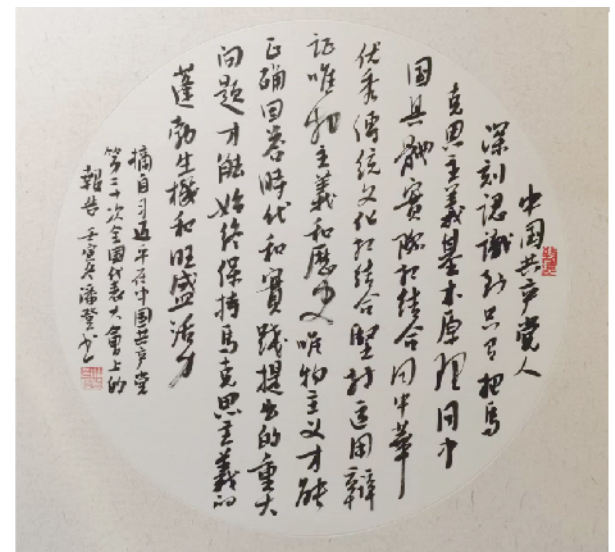 中国共产党人
深刻認識到只有把馬
克思主義基本原理同中
国具體實際相结合同中華
优秀傳統文化相结合堅持運用辯
证唯物主義和歷史唯物主义才能
正确回答時代和實踐提出的重大
问题才能始终保持馬克思主義的
蓬勃生機和旺盛活力
摘自习近平在中國共产党
第二十次全國代表大會上的
報告 壬寅冬潘登书